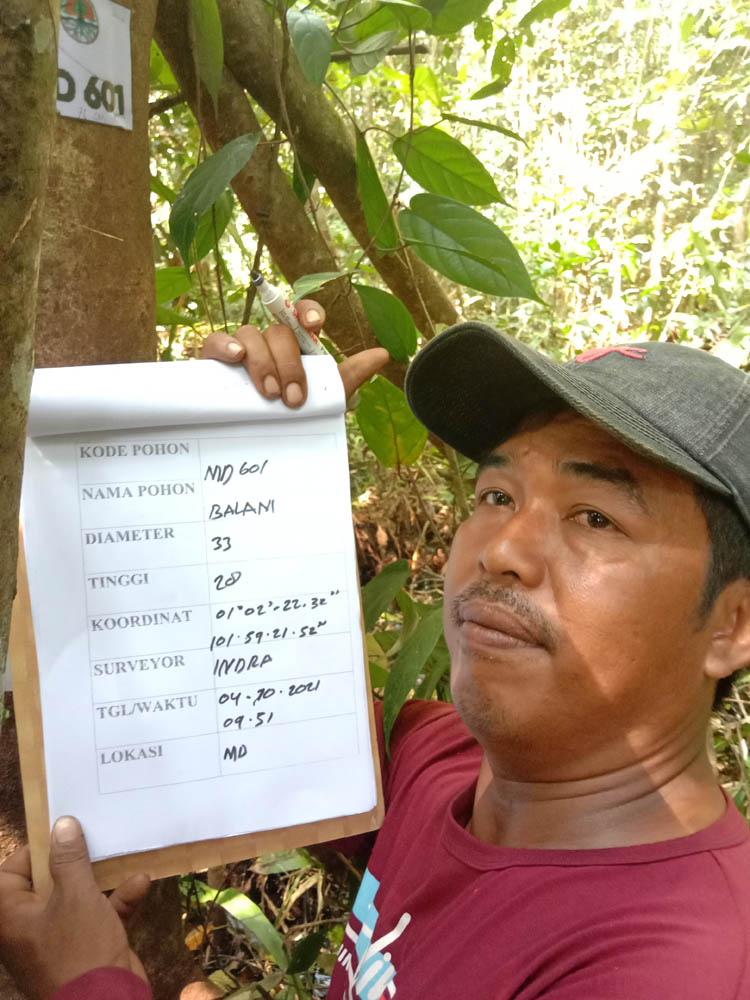 D 601
KODE POHON MD 601
NAMA POHON BALANI
DIAMETER 33
TINGGI 20
KOORDINAT 01°02'-22.32"
101.59.21.52"
SURVEYOR INDRA
TGL/WAKTU 04.10.2021
09.51
LOKASI MD